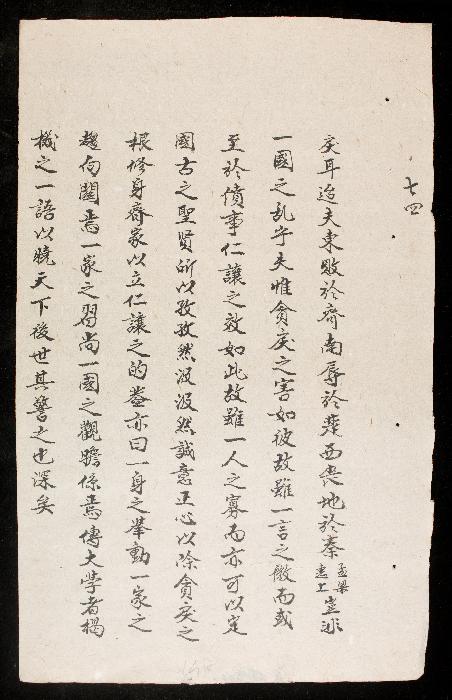 七四
戾耳迨夫東敗於齊南辱於楚西喪地於秦孟梁惠上豈非
一國之乱乎夫惟貪戾之害如彼故雖一言之微而或
至於僨事仁讓之效如此故雖一人之寡而亦可以定
國古之聖賢所以孜孜然汲汲然誠意正心以除貪戾之
根修身齊家以立仁讓之的盖亦曰一身之举動一家之
趨向関焉一家之習尚一國之觀瞻係焉傳大学者揭
機之一語以曉天下後世其警之也深矣